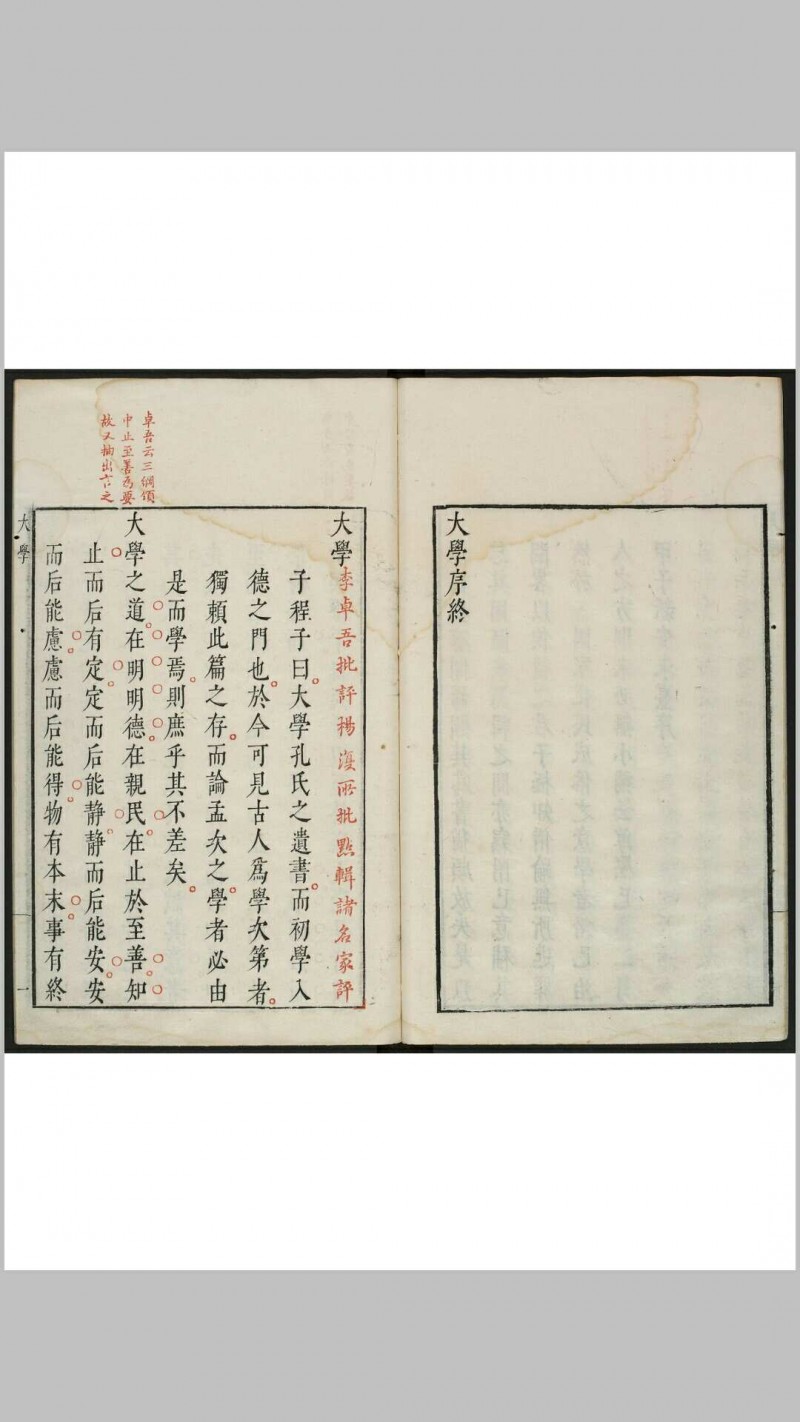 大學序終
大學李卓吾批評楊復所批點輯諸名家評
子程子曰大學孔氏之遺書而初學入
德之門也於今可見古人爲學次第者
獨賴此篇之存而論孟次之學者必由
是而學焉則庶乎其不差矣
大學之道在明明德在親民在止於至善知
止而后有定定而后能靜靜而后能安安
而后能慮慮而后能得物有本末事有終
卓吾云三綱領
中止至善爲要
故又抽出言之
大學
一